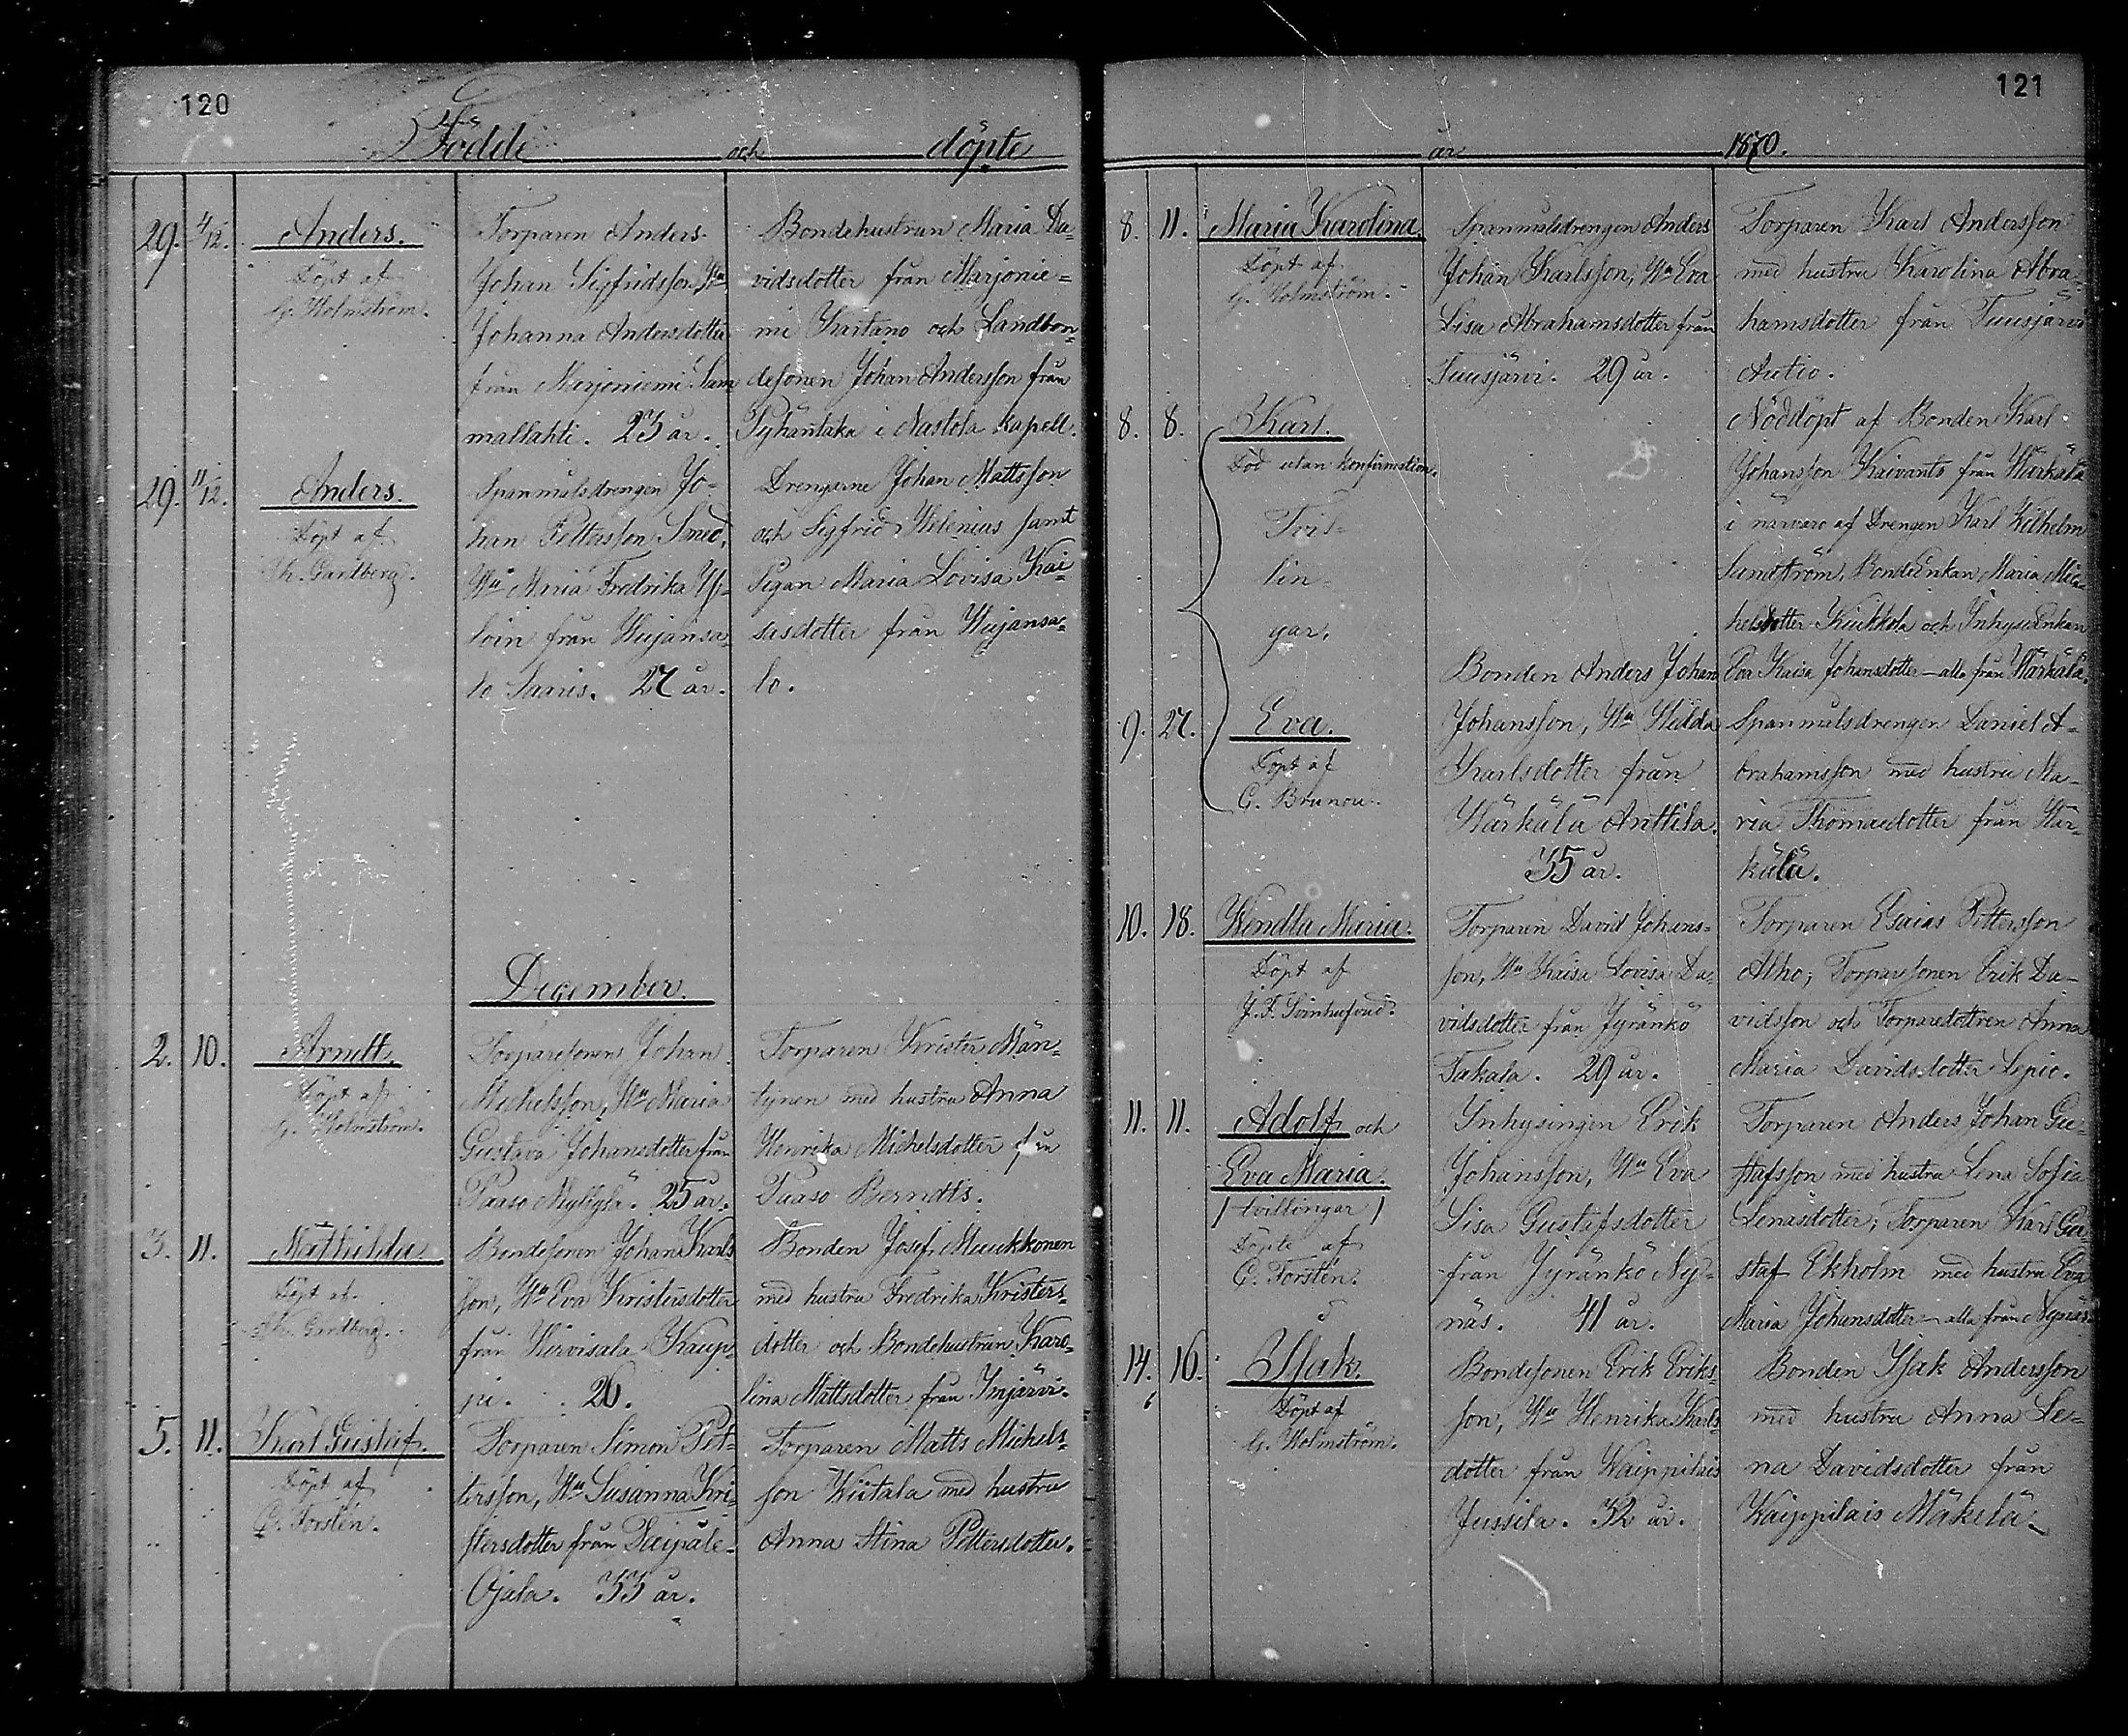 120
Födde och döpte
29. 4/12. Anders.
Döpt af
G. Holmström.
Torparen Anders
Johan Sigfridsson, Hu
Johanna Andersdotter
från Marjoniemi Sam
mallahti. 23 år.
Bondehustrun Maria Da-
vidsdotter från Marjonie=
mi Kartano och Landbon-
desonen Johan Andersson från
Pyhäntaka i Nastola kapell.
29. 11/12. Anders.
Döpt af
Th. Gardberg.
Spanmålsdrengen Jo-
han Pettersson Smed,
Hu Maria Fredrika
från Wujansa-
lo Saaris. 27 år.
Drengarne Johan Mattsson
och Sigfrid Helenias samt
Pigan Maria Lovisa Kai
sasdotter från Wujansa-
lo.
December.
2. 10. Arndt.
Döpt af
G. Holmström.
Torparesonen Johan
Michelsson, Hu Maria
Gustava Johansdotter från
Paaso Myllylä. 25 år.
Torparen Krister Män-
tynen med hustru Anna
Henrika Michelsdotter från
Paaso Berndts.
3. 11. Mathilda.
Döpt af
Th. Gardberg.
Bondesonen Johan Karls
son, Hu Eva Kristersdotter
från Hirvisalo Kaup-
pi. 26.
Bonden Josef Muukkonen
med hustru Fredrika Kristers-
dotter och Bondehustrun Karo-
lina Mattsdotter från Imjärvi.
5. 11. Karl Gustaf.
Döpt af
G. Forstén.
Torparen Simon Pet-
tersson, Hu Susanna Kri-
stersdotter från Taipale-
Ojala. 33 år.
Torparen Matts Michels-
son Wiitala med hustru
Anna Stina Pettersdotter.
121
år 1870.
8. 11. Maria Karolina.
Döpt af
G. Holmström.
Spanmålsdrengen Anders
Johan Karlsson, Hu Eva
Lisa Abrahamsdotter från
Tuusjärvi. 29 år.
Torparen Karl Andersson
med hustru Karolina Abra-
hamsdotter från Tuusjärvi
Autio.
8. 8. Karl.
Död utan konfirmation.
Tvil-
lin-
gar.
Nöddöpt af Bonden Karl
Johansson Kaivanto från Härkälä
i närvaro af Drengen Karl Wilhelm
Sundström, BondeEnkan Maria Mic-
helsdotter Kiukkola och InhysesEnkan
Eva Kaisa Johansdotter — alla från Härkälä.
9. 27. Eva.
Döpt af
G. Brunou.
Bonden Anders Johan
Johansson, Hu Hedda
Karlsdotter från
Härkälä Anttila.
35 år.
Spanmålsdrengen Daniel A-
brahamsson med hustru Ma-
ria Thomaedotter från Här-
kälä.
10. 18. Wendla Maria.
Döpt af
J. F. Svinhufvud.
Torparen David Johans-
son, Hu Kaisa Lovisa Da-
vidsdotter från Jyränkö
Takala. 29 år.
Torparen Esaias Pettersson
Alho; Torparesonen Erik Da-
vidsson och Torparedottren Anna
Maria Davidsdotter Lepio.
11. 11. Adolf och
Eva Maria.
/ tvillingar /
Döpte af
G. Forstén.
Inhysingen Erik
Johansson, Hu Eva
Lisa Gustafsdotter
från Jyränkö Ny-
näs. 41 år.
Torparen Anders Johan Gu-
stafsson med hustru Lena Sofia
Lenasdotter; Torparen Karl Gu-
staf Ekholm med hustru Eva
Maria Johansdotter — alla från Nynäs.
14. 16. Isak.
Döpt af
G. Holmström.
Bondesonen Erik Eriks-
son, Hu Henrika Karls
dotter från Waippilais
Jussila. 32 år.
Bonden Isak Andersson
med hustru Anna Le-
na Davidsdotter från
Waippilais Mäkelä.